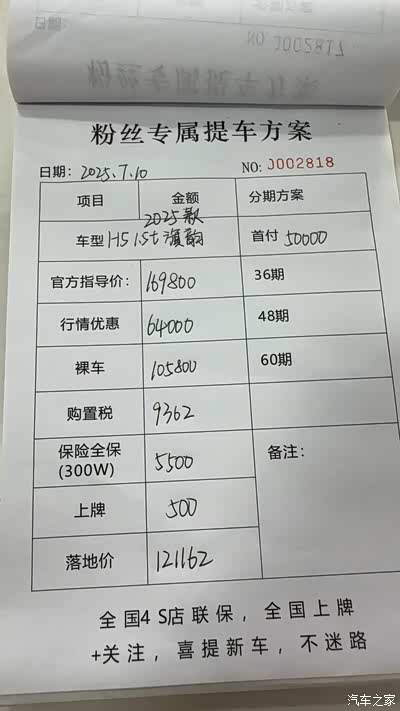 粉丝专属提车方案
日期：2025.7.10 NO: J002818
项目 金额 分期方案
2025款
车型 H5 1.5t 旗韵 首付 50000
官方指导价： 169800 36期
行情优惠 64000 48期
裸车 105800 60期
购置税 9362
保险全保 5500 备注：
(300W)
上牌 500
落地价 121162
全国4S店联保，全国上牌
+关注，喜提新车，不迷路
汽车之家